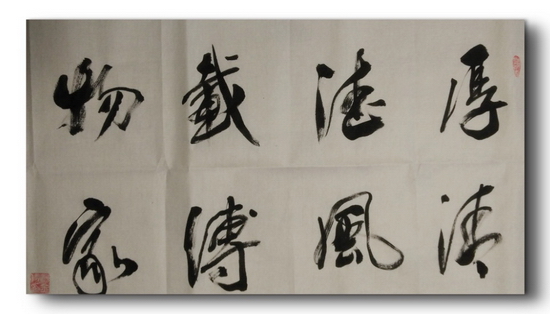 厚德載物
清風傳家